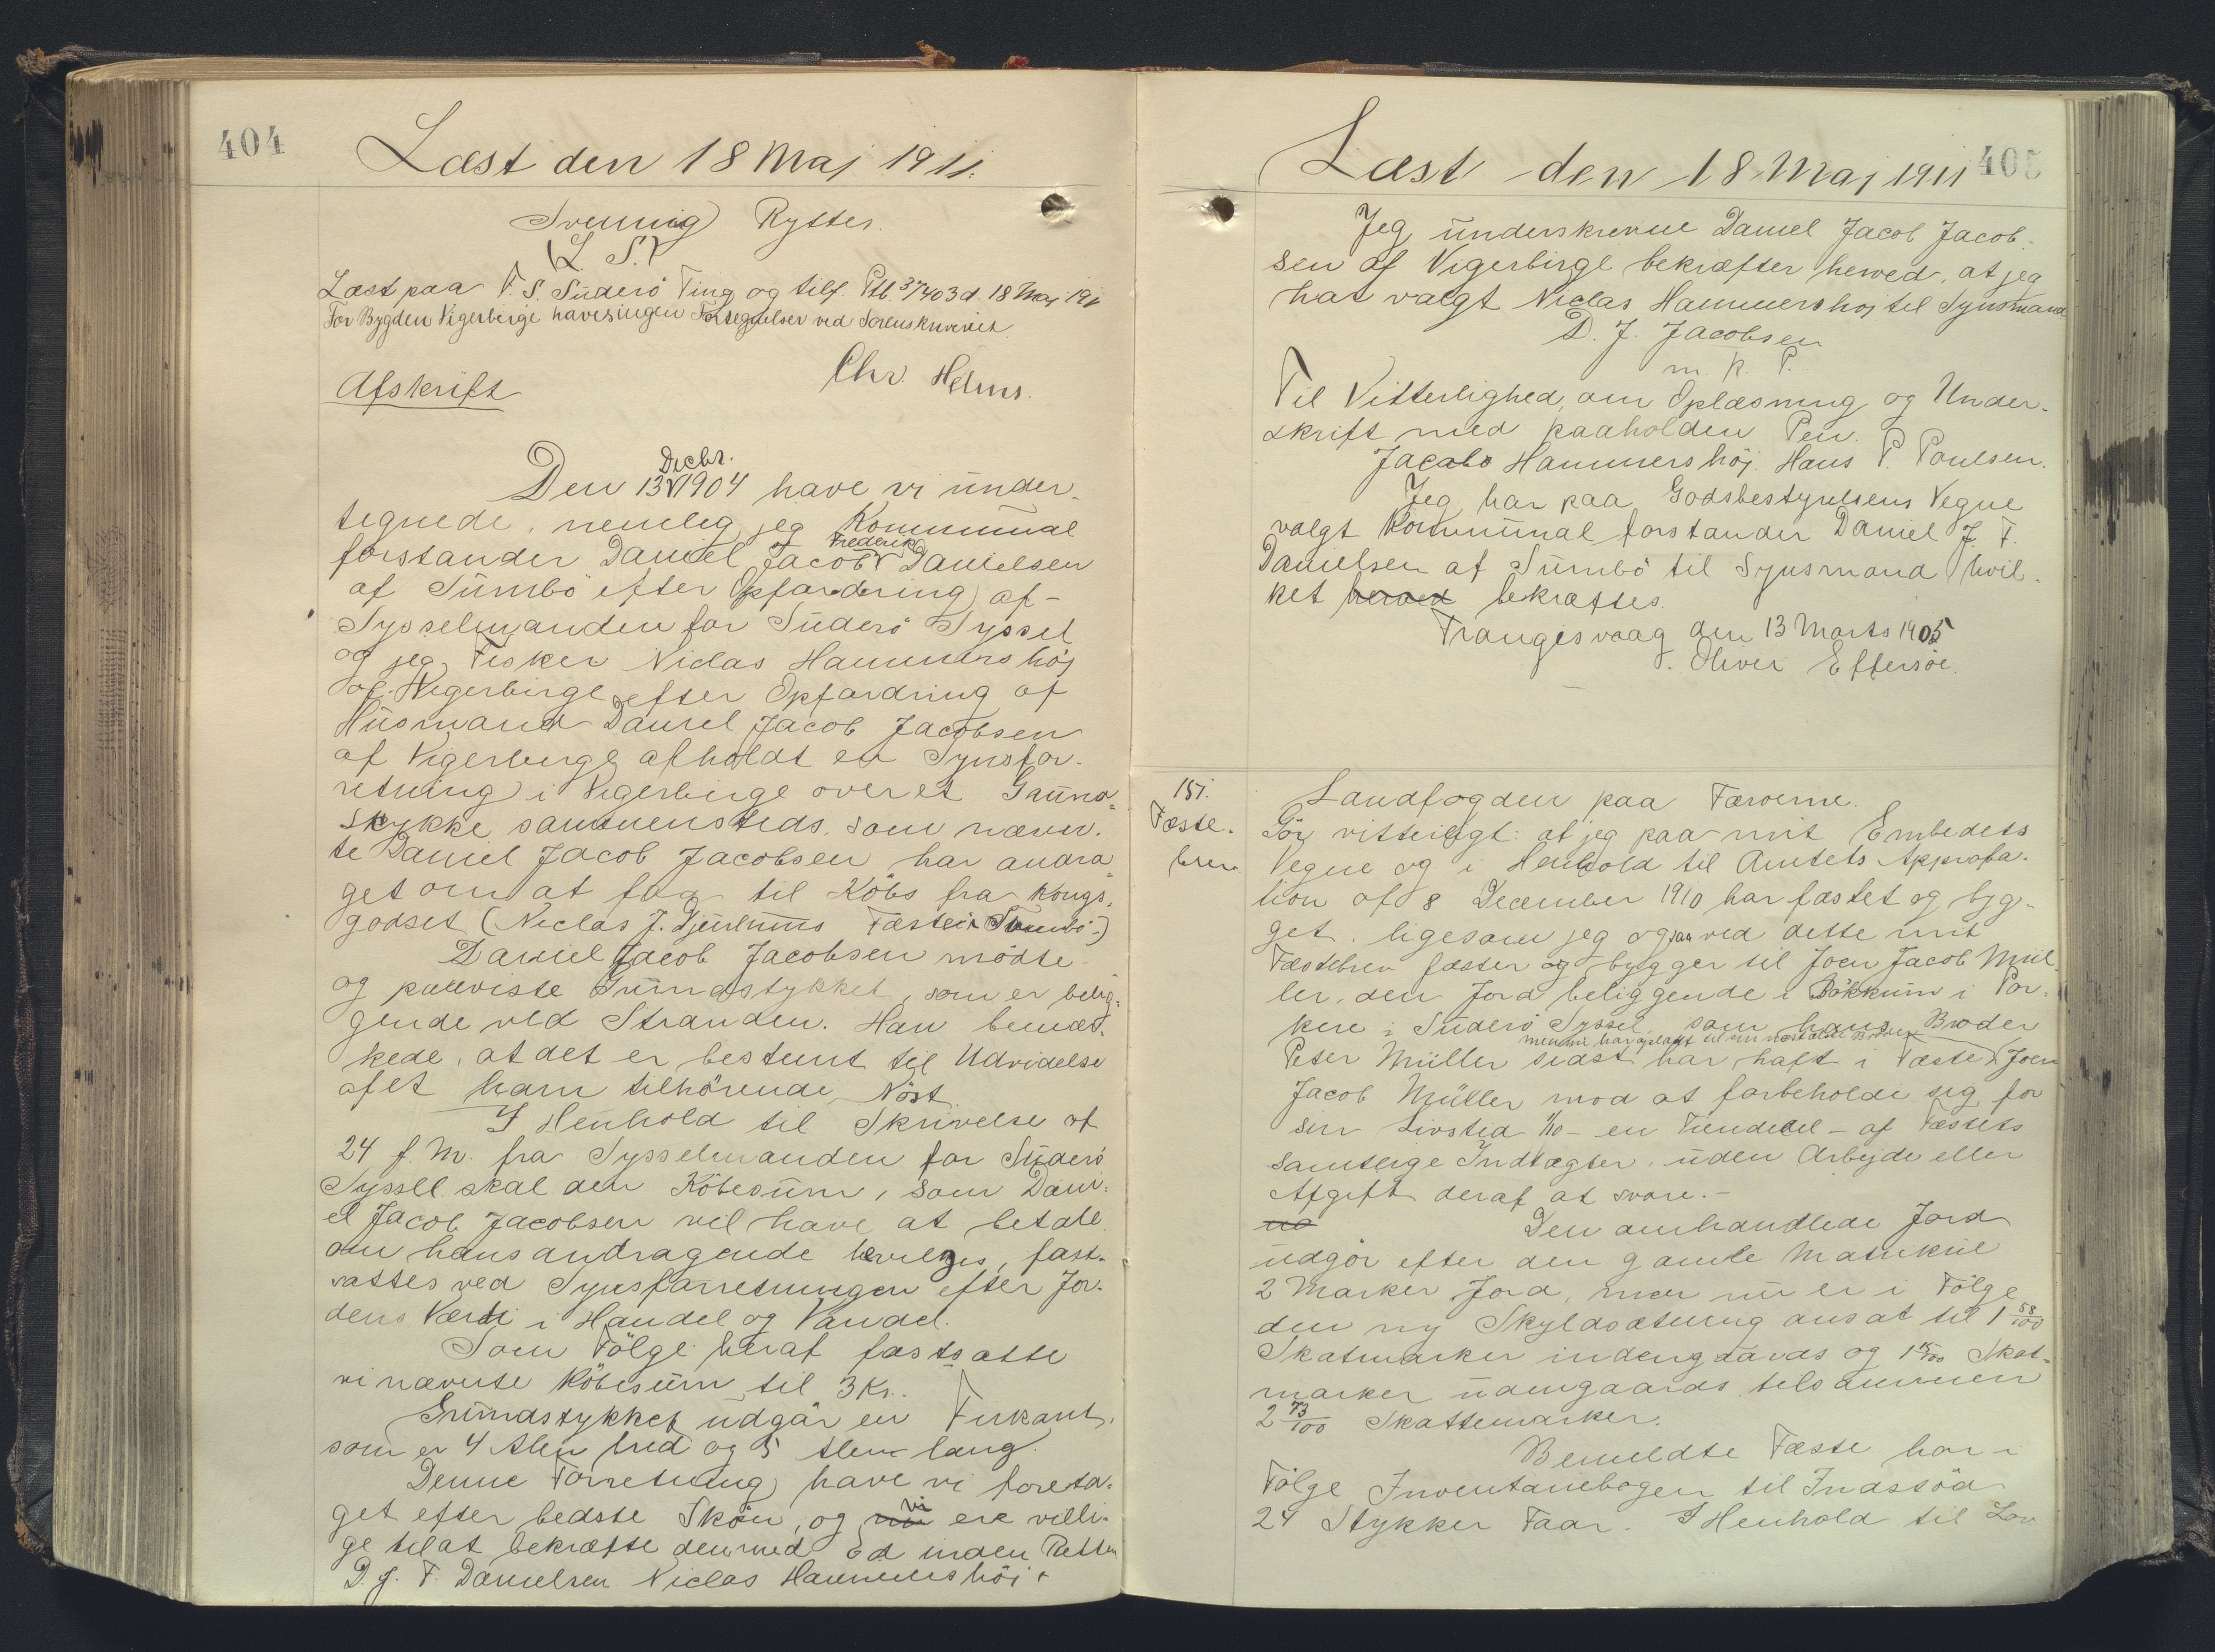 404
Læst den 18 Maj 1911.
Svenning Rytter.
(L. S.)
Læst paa V. S. Suderö Ting og tilf. Ptl. 37/403 d. 18 Maj 191
For Bygden Vigerbirge haves ingen Forregnelser ved Sorenskriveriet
Chr. Helms.
Afskrift
Den 13 Decbr. 1904 have vi under-
tegnede, nemlig jeg Kommunal
forstander Daniel Jacob Frederik Danielsen
af Sumbö efter Opfordring af
Sysselmanden for Suderö Syssel
og jeg Fisker Niclas Hammershöj
af Vigerbirge efter Opfordring af
Husmand Daniel Jacob Jacobsen
af Vigerbirge afholdt en Synsfor-
retning i Vigerbirge over et Grund-
stykke sammensteds, som nævn-
te Daniel Jacob Jacobsen har andra-
get om at faa til Köbs fra Kongs-
godset (Niclas J. Fæste i Sumbö.)
Daniel Jacob Jacobsen mödte
og paaviste Grundstykket, som er belig-
gende ved Stranden. Han bemær-
kede, at det er bestemt til Udvidelse
af et ham tilhörende Nöst.
I Henhold til Skrivelse af
24 f. M. fra Sysselmanden for Suderö
Syssel skal den Köbesum, som Dani-
el Jacob Jacobsen vil have at betale
om hans andragende bevilges, fast-
sættes ved Synsforretningen efter Jor-
dens Værdi i Handel og Vandel.
Som Fölge heraf fastsatte
vi nævnte Köbesum til 3 Kr.
Grundstykket udgör en Firkant,
som er 4 Alen bred og 5 Alen lang.
Denne Forretning have vi foreta-
get efter bedste Skön, og vi ere villi-
ge til at bekræfte den med Ed inden Retten
D. J. F. Danielsen Niclas Hammershöj
Læst den 18 Maj 1911 405
Jeg underskrevne Daniel Jacob Jacob-
sen af Vigerbirge bekræfter herved, at jeg
har valgt Niclas Hammershoj til Synsmand
D. J. Jacobsen
m. p. P.
Til Vitterlighed om Oplæsning og Under-
skrift med paaholden Pen.
Jacob Hammershöj. Hans P. Poulsen.
Jeg har paa Godsbestyrelsens Vegne
valgt Kommunal forstander Daniel J. F.
Danielsen af Sumbö til Synsmand hvil-
ket herved bekræftes.
Trangisvaag den 13 Marts 1905
Oliver Effersöe.
151.
Fæste-
brev
Landfogden paa Færöerne.
Gör vitterligt: at jeg paa mit Embedets
Vegne og i Henhold til Amtets Approba-
tion af 8 December 1910 har fæstet og byg-
get, ligesom jeg ogsaa ved dette mit
Fæstebrev fæster og bygger til Joen Jacob Mül-
ler, den Jord beliggende i Bökkum i Por-
kere i Suderö Syssel som hans Broder
men nu har opladt til sin næstældste Broder
Peter Müller sidst har haft i Fæste Joen
Jacob Müller mod at forbeholde sig for
sin Livstid 1/10 - en Tiendedel - af Fæstets
samtlige Indtægter, uden Arbejde eller
Afgift deraf at svare.-
Den omhandlede Jord
udgör efter den gamle Matrikul
2 Marker Jord, men nu er i Fölge
den ny Skyldsætning ansat til 1 58/100
Skatmarker indengaards og 1 15/100 Skat-
marker udengaards tilsammen
2 73/100 Skattemarker.
Bemeldte Fæste har i
Fölge Inventariebogen til Indssöd
24 Stykker Faar. I Henhold til Lov